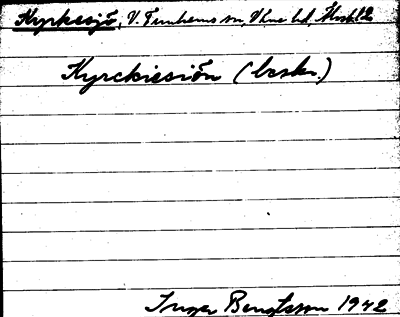 Kyrkesjö, V. Tunhems sn, Väne hd, Älvsb. l.
Kyrckiesiön (beskr.)
Inger Bengtsson 1942